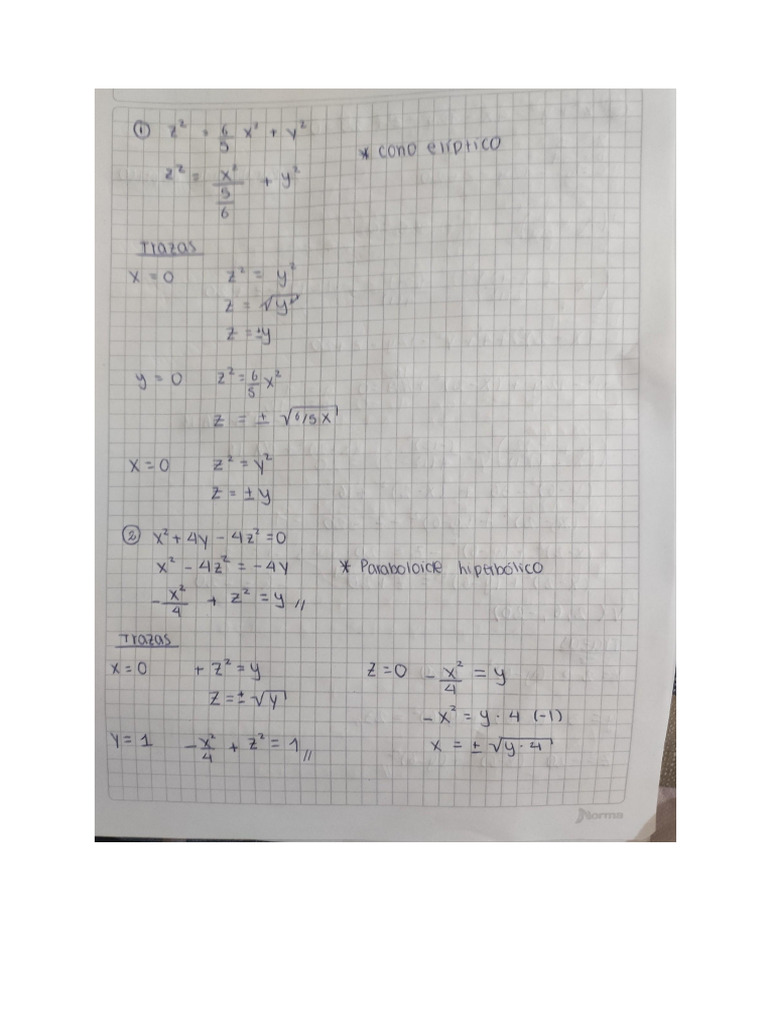 ① z² = 6/5 x² + y²
* cono elíptico
z² = x²/(5/6) + y²
Trazas
x = 0 z² = y²
z = √y²
z = ±y
y = 0 z² = 6/5 x²
z = ± √6/5 x
x = 0 z² = y²
z = ± y
② x² + 4y - 4z² = 0
x² - 4z² = -4y * Paraboloide hiperbólico
-x²/4 + z² = y //
Trazas
x = 0 + z² = y
z = ± √y
z = 0 -x²/4 = y
-x² = y · 4 (-1)
x = ± √y · 4
y = 1 -x²/4 + z² = 1 //
Norma